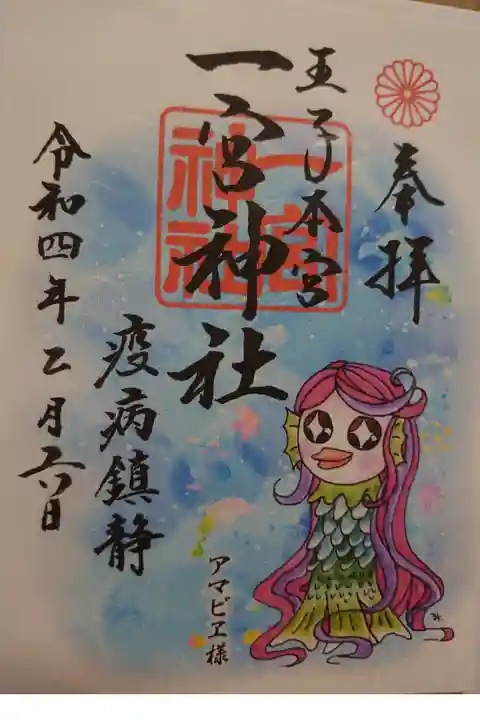 奉拝
王子本宮
一宮神社
一宮神社
疫病鎮静
アマビヱ様
令和四年二月六日